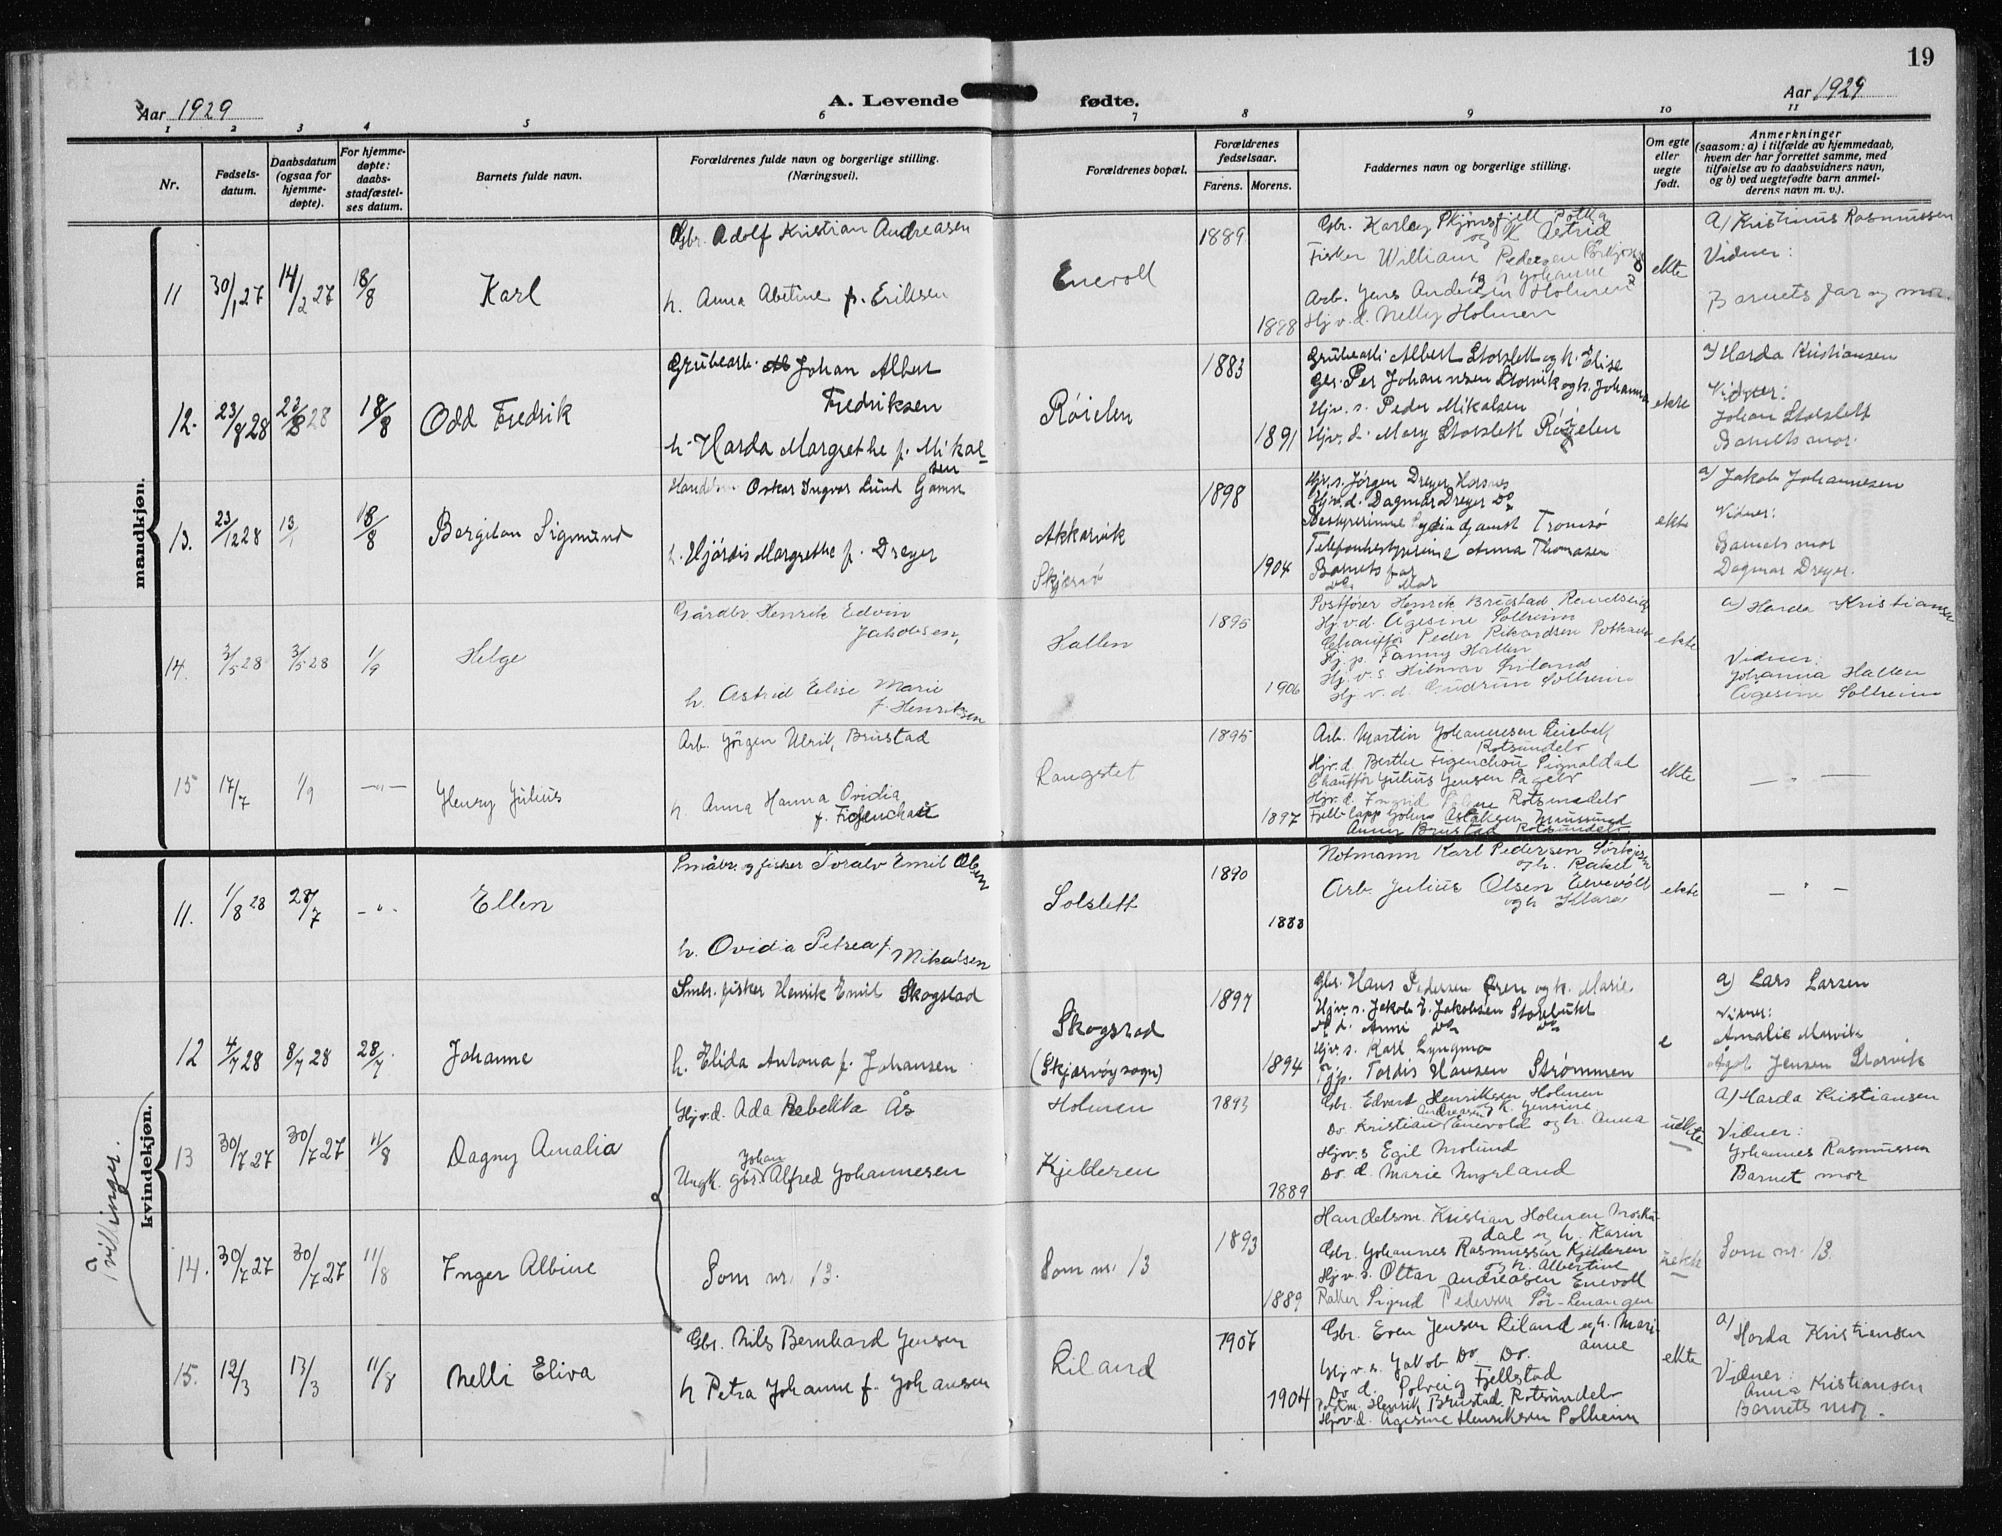 19
Aar 1929
A. Levende fødte.
Aar 1929
1 2 3 4 5 6 7 8 9 10 11
Nr.
Fødsels-
datum.
Daabsdatum
(ogsaa for
hjemme-
døpte).
For hjemme-
døpte:
daabs-
stadfæstel-
ses datum.
Barnets fulde navn.
Forældrenes fulde navn og borgerlige stilling.
(Næringsvei).
Forældrenes bopæl.
Forældrenes
fødselsaar.
Farens. Morens.
Faddernes navn og borgerlige stilling.
Om egte
eller
uegte
født.
Anmerkninger
(saasom: a) i tilfælde av hjemmedaab,
hvem der har forrettet samme, med
tilføielse av to daabsvidners navn,
og b) ved uegtefødte barn anmel-
derens navn m. v.).
mandkjøn.
11
30/1 27
14/2 27
18/8
Karl
Gbr. Adolf Kristian Andreasen
h. Anna Abetine f. Eriksen
Enevoll
1889
1898
Gbr. Karley Skjønsfjell Potka
og h Astrid
Fisker William Pedersen
og h Johanne
Arb. Jens Andersen Holmen
Hj v. d. Nelly Holmen
ekte
a) Kristinus Rasmussen
Vidner:
Barnets far og mor.
12.
23/8 28
23/8 28
18/8
Odd Fredrik
Grubearb. Johan Albert
Fredriksen
h. Harda Margrethe f. Mikal-
sen
Røielen
1883
1891
Grubearb. Albert Storslett og h. Elise
Gbr. Per Johannsen Storvik og h. Johanna
Ujv. s. Peder Mikalsen
Ujv. d. Mary Storslett Røielen
ekte
a) Harda Kristiansen
Vidner:
Johan Storslett
Barnets mor.
13.
23/12 28
13/1
18/8
Bergiton Sigmund
Oskar Ingvar Lund
h. Hjørdis Margrethe f. Dreyer
Akkarvik
Skjærvø
1898
1904
Ujv. s. Jørgen Dreyer
Ujv. d. Dagmar Dreyer do
Bestyrerinne Tromsø
Telefonbestyrerinne Anna Thomasen
Barnets far
do. Mor
ekte
a) Jakob Johannesen
Vidner:
Barnets mor
Dagmar Dreyer.
14.
3/5 28
3/5 28
1/9
Helge
Gårdbr Henrik Edvin
Jakobsen,
h. Astrid Elise Marie
f. Henriksen
Hallen
1895
1906
Postfører Henrik Brustad
Hj. v. d. Agesine Solheim
Chauffør Peder Rikardsen
Hj. p. Fanny Hallen
Hj. v. s. Hilmar Liland
Hj. v. d. Gudrun Solheim
ekte
a) Harda Kristiansen
Vidner:
Johanna Hallen
Agesine Solheim
15
17/7
1/9
—"—
Henry Julius
Arb. Jørgen Ulrik Brustad
h. Anna Hanna Ovidia
f. Figenchau
Langslet
1895
1897
Arb. Martin Johannesen
Rotsundelv
Hjv. d. Berthe Figenchou Signaldal
Chauffør Julius Jensen
Hjv. d. Ingrid Rotsundelv
Anny Brustad Rotsundelv
ekte
— " —
kvindekjøn.
11.
1/8 28
28/7
— " -
Ellen
Småbr. og fisker Toralv Emil Olsen
h. Ovidia Petrea f.
Mikalsen
Solslett
1890
1883
Notmann Karl Pedersen
og h. Rakel
Arb. Julius Olsen Enevoll
og h Klara
ekte
— " —
12
4/7 28
8/7 28
28/7.
Johanne
Smbr. fisker Henrik Emil Skogstad
h. Elida Antona f. Johansen
Skogstad
(Skjærvøy sogn)
1897
1894
Gbr. Hans Pedersen og h. Marie
Ujv. s. Jakob E. Jakobsen Storbukt
do d. Anni do do
Ujv. s. Karl Lyngmo
Tjp. Tordis Hansen Strømmen
e
a) Lars Larsen
Vidner:
Amalie Marvik
Agot Jensen Storvik
Tvillinger.
13
30/7 27
30/7 27
11/8
Dagny Amalia
Hjv.d. Ada Rebekka Ås
Ungk. gbr. Johan Alfred Johannesen
Holmen
Kjelderen
1893
1889
Gbr. Edvart Henriksen Holmen
og h. Jensine
Do. Kristian Andreasen Enevold og h. Anna
Hjv. s Egil Molund
Do. d. Marie Myrland
uekte
a) Harda Kristiansen
Vidner:
Johannes Rasmussen
Barnet mor
14.
30/7 27
30/7 27
11/8
Inger Albine
Som nr. 13.
Som nr. 13
1893
1889
Handelsm. Kristian Holmen
og h. Karin
Gbr. Johannes Rasmussen Kjelderen
og h. Albertine
Hj v. s. Ottar Andreasen Enevoll
Sigrid Pedersen Sør-Lenangen
uekte
Som nr. 13.
15.
12/3
13/3
11/8
Nelli Eliva
Gbr. Nils Bernhard Jensen
h Petra Johanne f. Johansen
Liland
1907
1904
Gbr. Even Jensen Liland og h. Mari-
anne
Hjv. s. Jakob Do Do.
Do d. Solveig Fjellstad
Postm. Henrik Brustad Rotsundelv
Hjv. d. Agesine Henriksen Solheim
ekte
a)
Harda Kristiansen
Vidner:
Anna Kristiansen
Barnets mor.